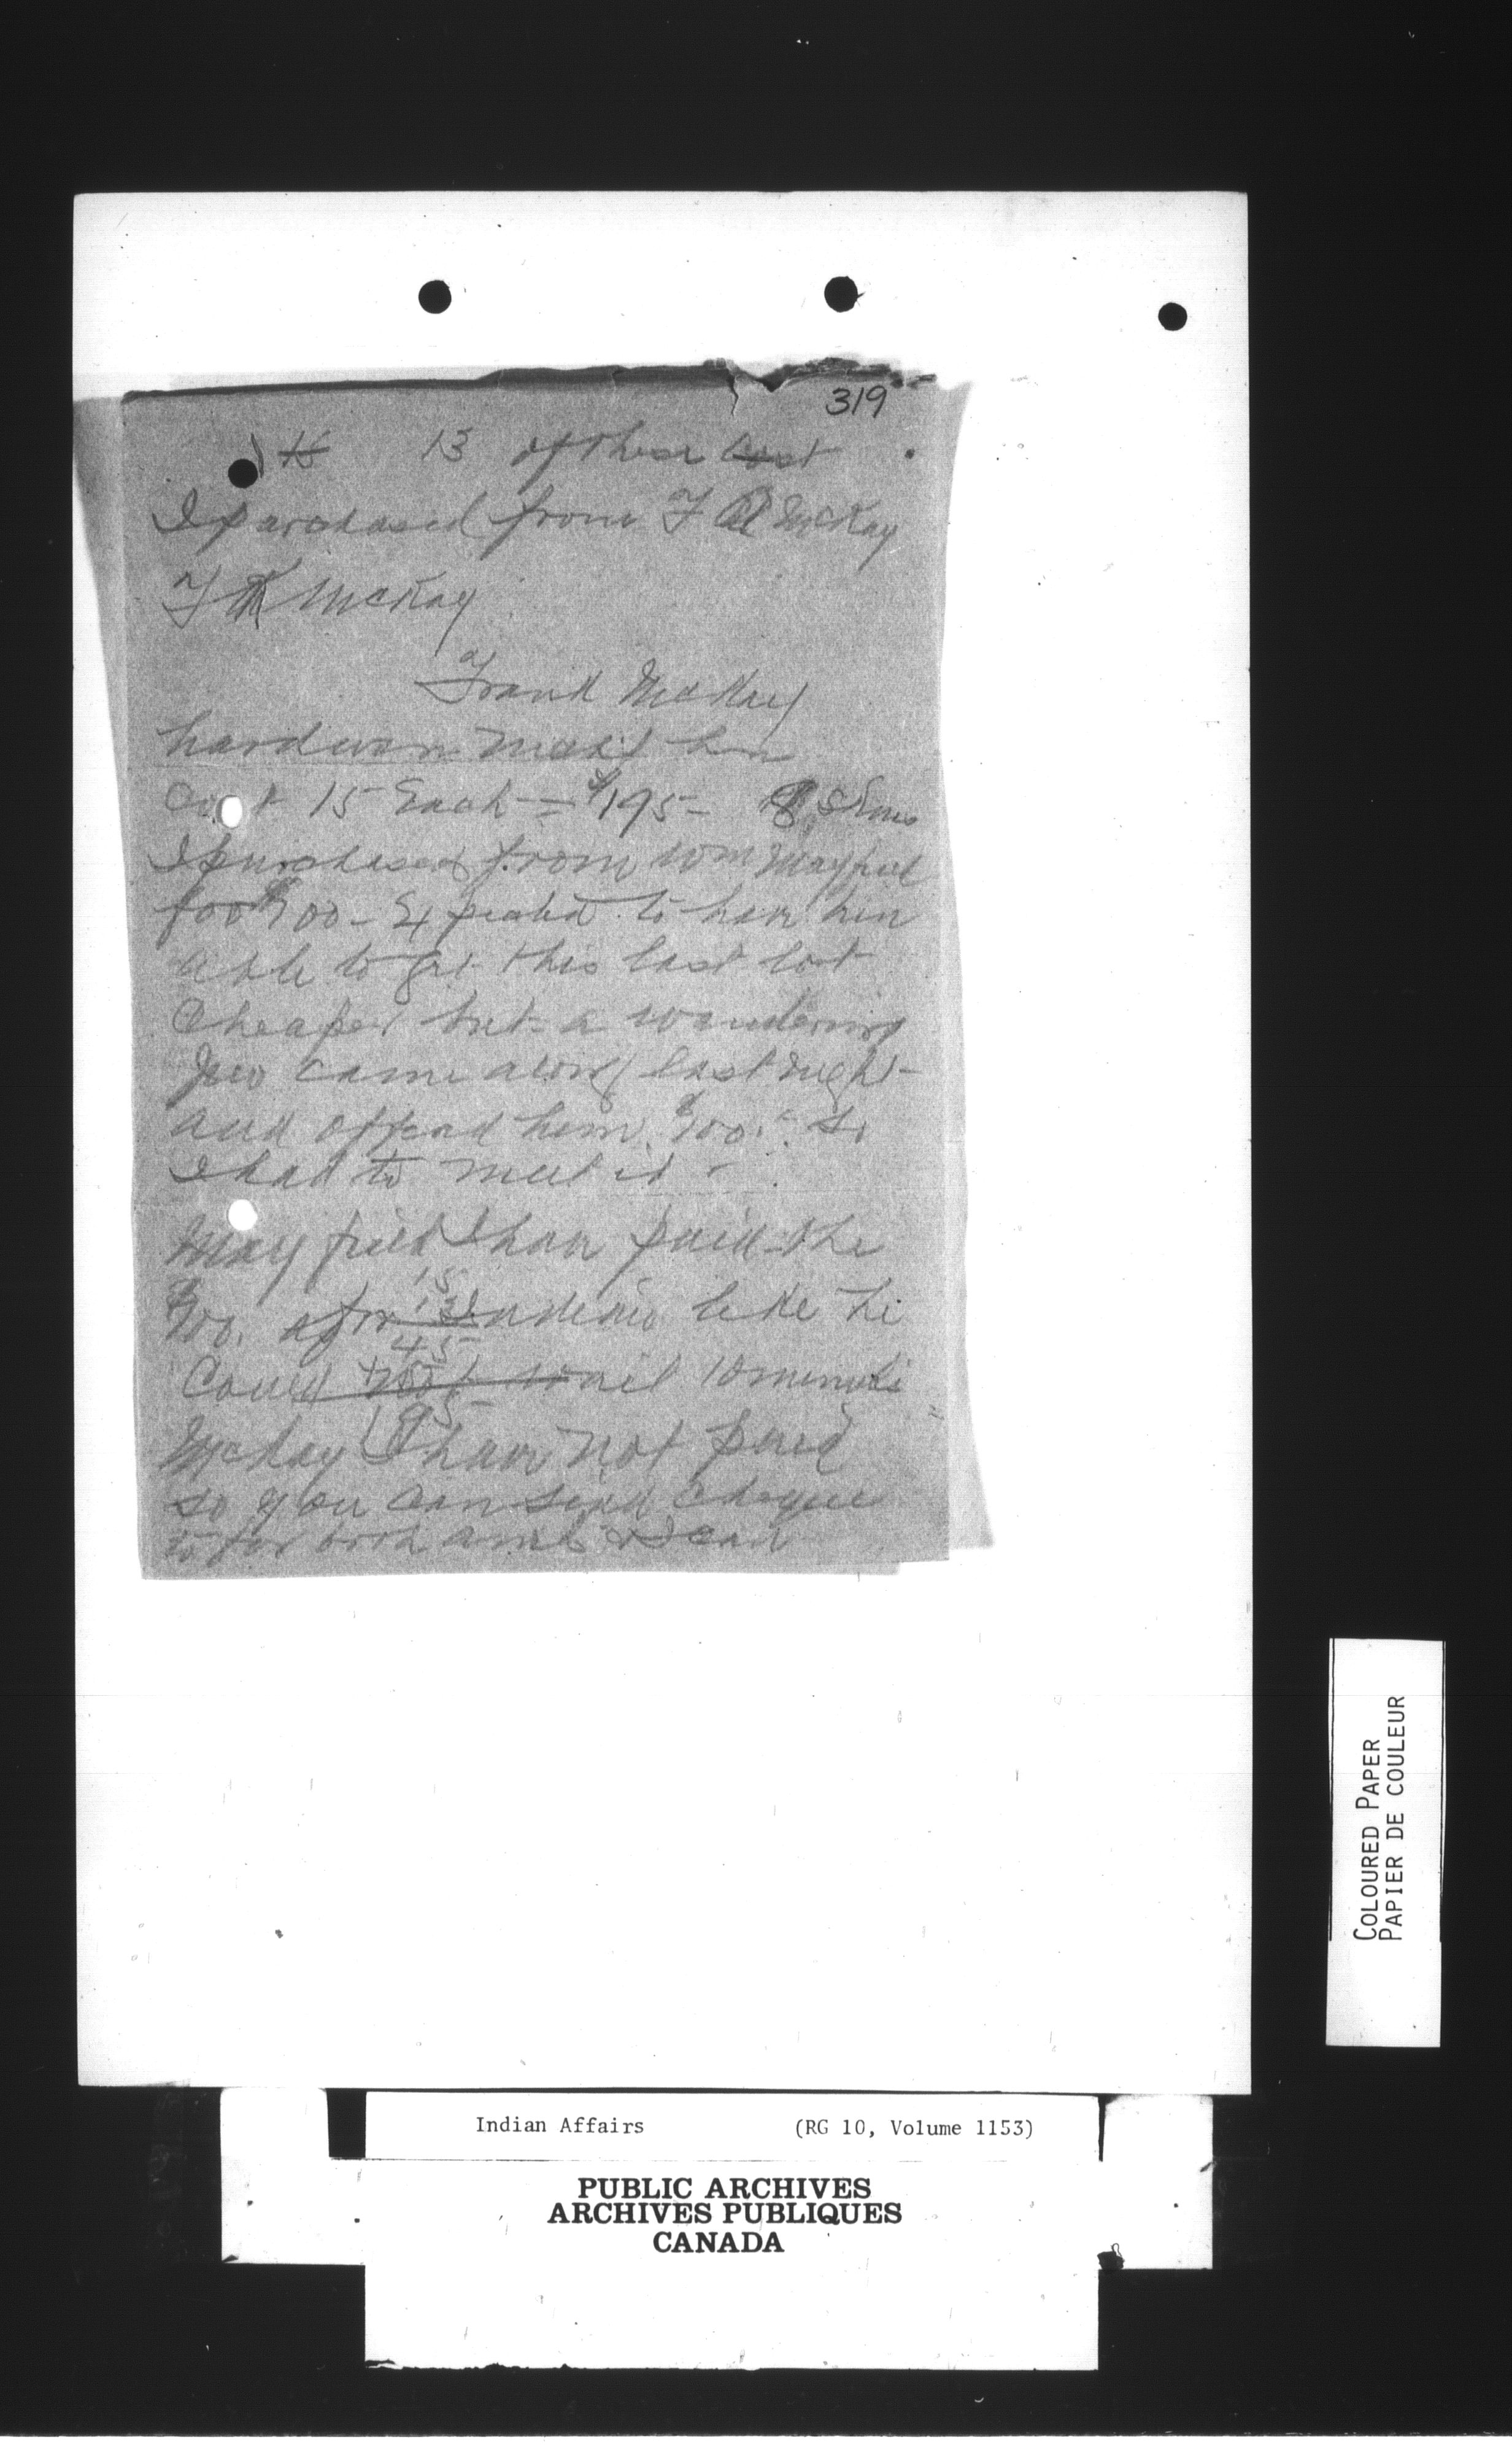 319
15 13 of these cost
I purchased from F A McKay
F A McKay
Frank McKay
hardware
cost 15 Each = $195 - 8 skins
I purchased from Wm Mayfield
for $100 - Expected to have been
able to get this last lot
cheaper but a wandering
Jew came along last night
and offered him $100. so
I had to meet it -
Mayfield I have paid the
$100. Indian like he
15
13
45
could not wait 10 minutes
15
195
McKay I have not paid
so you can send cheque
COLOURED PAPER
PAPIER DE COULEUR
Indian Affairs (RG 10, Volume 1153)
PUBLIC ARCHIVES
ARCHIVES PUBLIQUES
CANADA